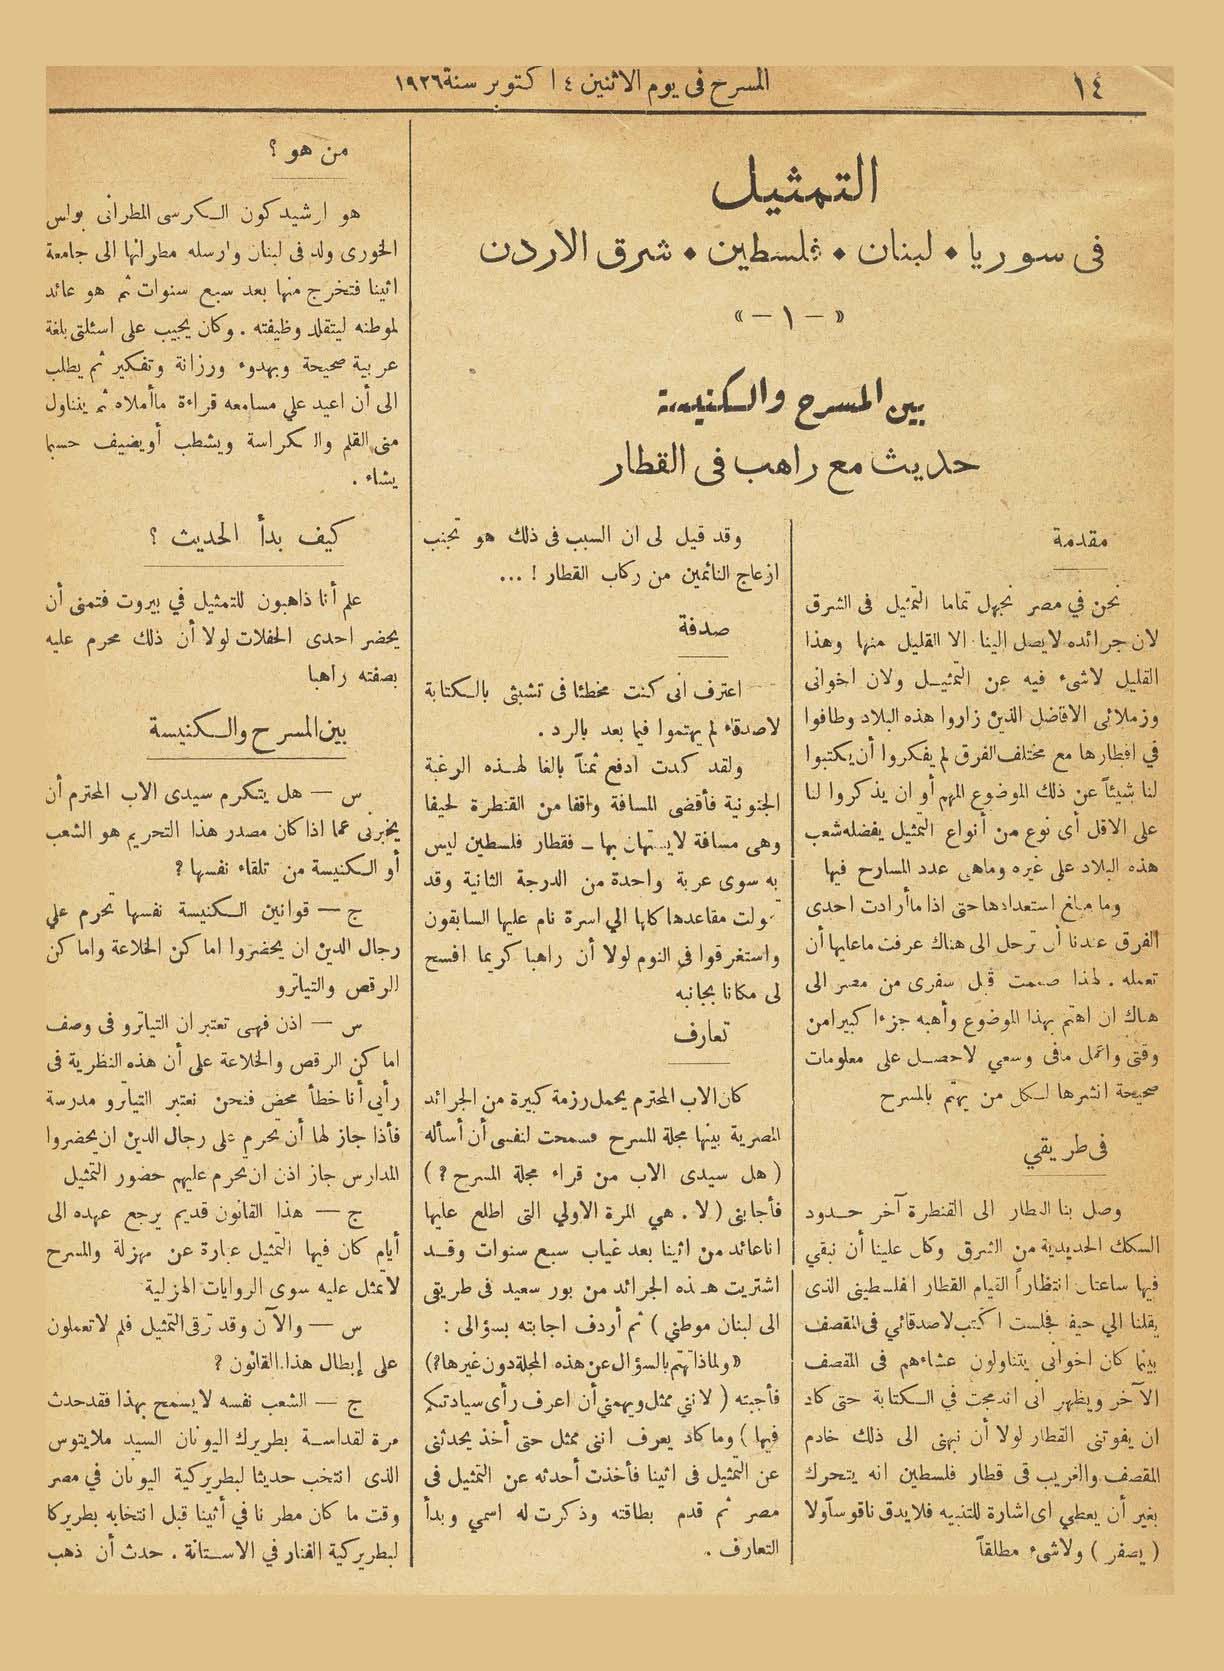 ١٤
المسرح فى يوم الاثنين ٤ ا كتوبر سنة ١٩٢٦
التمثيل
فى سوريا • لبنان • فلسطين • شرق الاردن
« – ١ – »
بين المسرح والكنيسة
حديث مع راهب فى القطار
مقدمة
نحن في مصر نجهل تماما التمثيل فى الشرق
لان جرائده لا يصل الينا الا القليل منها وهذا
القليل لاشىء فيه عن التمثيل ولان اخوانى
وزملائى الافاضل الذين زاروا هذه البلاد وطافوا
في اقطارها مع مختلف الفرق لم يفكروا أن يكتبوا
لنا شيئاً عن ذلك الموضوع المهم أو ان يذكروا لنا
على الاقل أى نوع من أنواع التمثيل يفضله شعب
هذه البلاد على غيره وماهى عدد المسارح فيها
وما مبلغ استعدادها حتى اذا ما أرادت احدى
الفرق عندنا أن ترحل الى هناك عرفت ماعليها أن
تعمله . لهذا صممت قبل سفرى من مصر الى
هناك ان اهتم بهذا الموضوع وأهبه جزءا كبيرا من
وقتى واعمل مافى وسعي لاحصل على معلومات
صحيحة انشرها لكل من يهتم بالمسرح
فى طريقي
وصل بنا القطار الى القنطرة آخر حدود
السكك الحديدية من الشرق وكان علينا أن نبقي
فيها ساعتان انتظاراً لقيام القطار الفلسطينى الذى
يقلنا الي حيفا فجلست اكتب لاصدقائي فى المقصف
بينما كان اخوانى يتناولون عشاءهم فى المقصف
الآخر ويظهر انى اندمجت في الكتابة حتى كاد
ان يفوتنى القطار لولا أن نبهنى الى ذلك خادم
المقصف والغريب فى قطار فلسطين انه يتحرك
بغير أن يعطي اى اشارة للتنبيه فلا يدق ناقوسا ولا
( يصفر ) ولاشىء مطلقاً
وقد قيل لى ان السبب فى ذلك هو تجنب
ازعاج النائمين من ركاب القطار ! ...
صدفة
اعترف انى كنت مخطئا فى تشبثى بالكتابة
لاصدقاء لم يهتموا فيما بعد بالرد .
ولقد كدت ادفع ثمناً بالغا لهذه الرغبة
الجنونية فأقضى المسافة واقفا من القنطرة لحيفا
وهى مسافة لا يستهان بها – فقطار فلسطين ليس
به سوى عربة واحدة من الدرجة الثانية وقد
حولت مقاعدها كلها الي اسرة نام عليها السابقون
واستغرقوا فى النوم لولا أن راهبا كريما افسح
لى مكانا بجانبه
تعارف
كان الاب المحترم يحمل رزمة كبيرة من الجرائد
المصرية بينها مجلة المسرح فسمحت لنفسى أن أسأله
( هل سيدى الاب من قراء مجلة المسرح ؟ )
فأجابنى ( لا . هي المرة الاولي التى اطلع عليها
انا عائد من اثينا بعد غياب سبع سنوات وقد
اشتريت هذه الجرائد من بور سعيد فى طريقى
الى لبنان موطني ) ثم أردف اجابته بسؤالى :
« ولماذا تهتم بالسؤال عن هذه المجلة دون غيرها ؟)
فأجبته ( لانني ممثل ويهمني أن اعرف رأى سيادتكم
فيها ) وما كاد يعرف اننى ممثل حتى أخذ يحدثنى
عن التمثيل فى اثينا فأخذت أحدثه عن التمثيل فى
مصر ثم قدم بطاقته وذكرت له اسمي وبدأ
التعارف .
من هو ؟
هو ارشيدكون الكرسى المطرانى بولس
الخورى ولد فى لبنان وارسله مطرانها الى جامعة
اثينا فتخرج منها بعد سبع سنوات ثم هو عائد
لموطنه ليتقلد وظيفته . وكان يجيب على اسئلتى بلغة
عربية صحيحة وبهدوء ورزانة وتفكير ثم يطلب
الى أن اعيد علي مسامعه قراءة ما أملاه ثم يتناول
منى القلم والكراسة ويشطب أو يضيف حسبما
يشاء .
كيف بدأ الحديث ؟
علم أنا ذاهبون للتمثيل في بيروت فتمنى أن
يحضر احدى الحفلات لولا أن ذلك محرم عليه
بصفته راهبا
بين المسرح والكنيسة
س – هل يتكرم سيدى الاب المحترم أن
يخبرنى عما اذا كان مصدر هذا التحريم هو الشعب
أو الكنيسة من تلقاء نفسها ؟
ج – قوانين الكنيسة نفسها تحرم علي
رجال الدين ان يحضروا اماكن الخلاعة واماكن
الرقص والتياترو
س – اذن فهى تعتبر ان التياترو فى وصف
اماكن الرقص والخلاعة على أن هذه النظرية فى
رأيي أنا خطأ محض فنحن نعتبر التياترو مدرسة
فأذا جاز لها أن تحرم على رجال الدين ان يحضروا
المدارس جاز اذن ان تحرم عليهم حضور التمثيل
ج – هذا القانون قديم يرجع عهده الى
أيام كان فيها التمثيل عبارة عن مهزلة والمسرح
لا تمثل عليه سوى الروايات الهزلية
س – والآن وقد ترقى التمثيل فلم لا تعملون
على إبطال هذا القانون ؟
ج – الشعب نفسه لا يسمح بهذا فقد حدث
مرة لقداسة بطريرك اليونان السيد ملايتوس
الذى انتخب حديثا لبطريركية اليونان في مصر
وقت ما كان مطرنا في أثينا قبل انتخابه بطريركا
لبطريركية الفنار في الاستانة . حدث أن ذهب